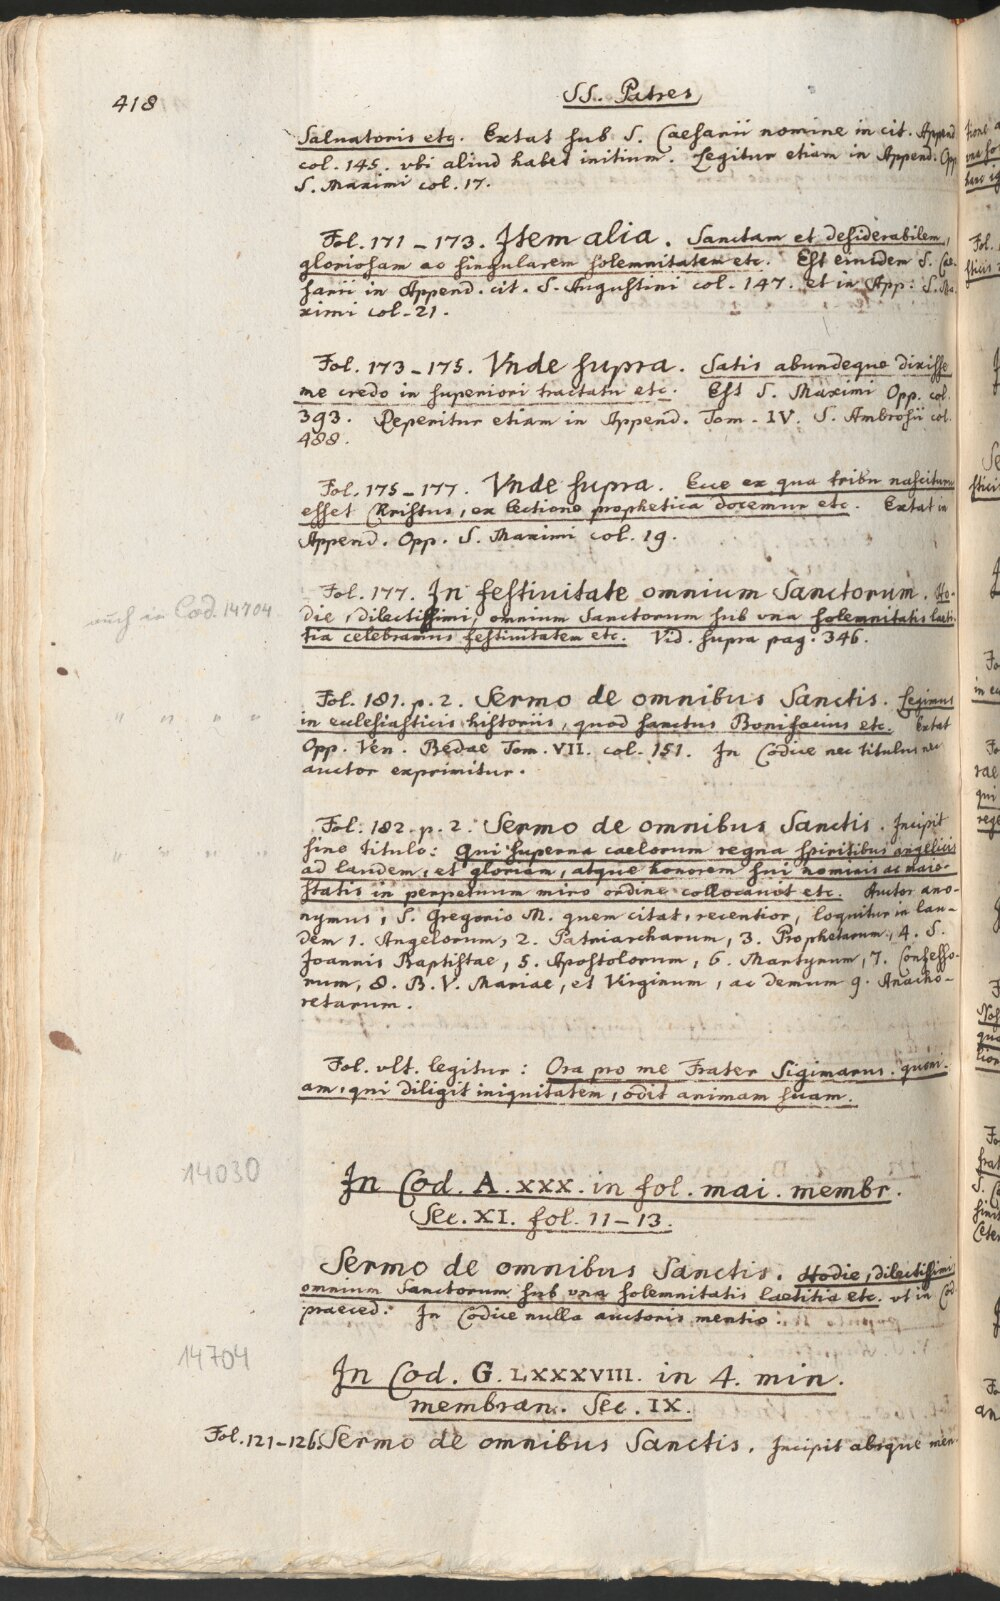 418
SS. Patres
Saluatoris etc. Extat sub S. Caesarii nomine in cit. Append
col. 145. vbi aliud habet initium. Legitur etiam in Append. Opp
S. Maximi col. 17.
Fol. 171 - 173. Item alia. Sanctam et desiderabilem,
gloriosam ac singularem solemnitatem etc. Est eiusdem S. Cae-
sarii in Append. cit. S. Augustini col. 147. et in App: S. Ma
ximi col. 21.
Fol. 173 - 175. Vnde supra. Satis abundeque dixisse
me credo in superiori tractatu etc. Est S. Maximi Opp. col.
393. Reperitur etiam in Append. Tom. IV. S. Ambrosii col.
488.
Fol. 175 - 177. Vnde supra. Ecce ex qua tribu nasciturus
esset Christus, ex lectione prophetica docemur etc. Extat in
Append. Opp. S. Maximi col. 19.
Fol. 177. In festiuitate omnium Sanctorum. Ho-
auch in Cod. 14704
die, dilectissimi, omnium Sanctorum sub vna solemnitatis laeti-
tia celebramus festiuitatem etc. Vid. supra pag. 346.
Fol. 181. p. 2. Sermo de omnibus Sanctis. Legimus
" " " "
in ecclesiasticis historiis, quod sanctus Bonifacius etc. Extat
Opp. Ven. Bedae Tom. VII. col. 151. In Codice nec titulus nec
auctor exprimitur.
Fol. 182. p. 2. Sermo de omnibus Sanctis. Incipit
sine titulo: Qui superna caelorum regna spiritibus angelicis
" " " "
ad laudem, et gloriam, atque honorem sui nominis ac maie-
statis in perpetuum miro ordine collocauit etc. Auctor ano-
nymus, S. Gregorio M. quem citat, recentior, loquitur in lau-
dem 1. Angelorum, 2. Patriarcharum, 3. Prophetarum, 4. S.
Joannis Baptistae, 5. Apostolorum, 6. Martyrum, 7. Confesso-
rum, 8. B. V. Mariae, et Virginum, ac demum 9. Anacho-
retarum.
Fol. vlt. legitur: Ora pro me Frater Sigimarus. quoni-
am, qui diligit iniquitatem, odit animam suam.
14030
In Cod. A. XXX. in fol. mai. membr.
Sec. XI. fol. 11 - 13.
Sermo de omnibus Sanctis. Hodie, dilectissimi
omnium Sanctorum sub vna solemnitatis laetitia etc. vt in Cod
praeced. In Codice nulla auctoris mentio:
14704
In Cod. G. LXXXVIII. in 4. min.
membran. Sec. IX.
Fol. 121-126. Sermo de omnibus Sanctis. Incipit absque men-